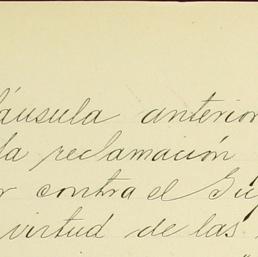 láusula anterior
la reclamación
r contra el Sup
virtud de las